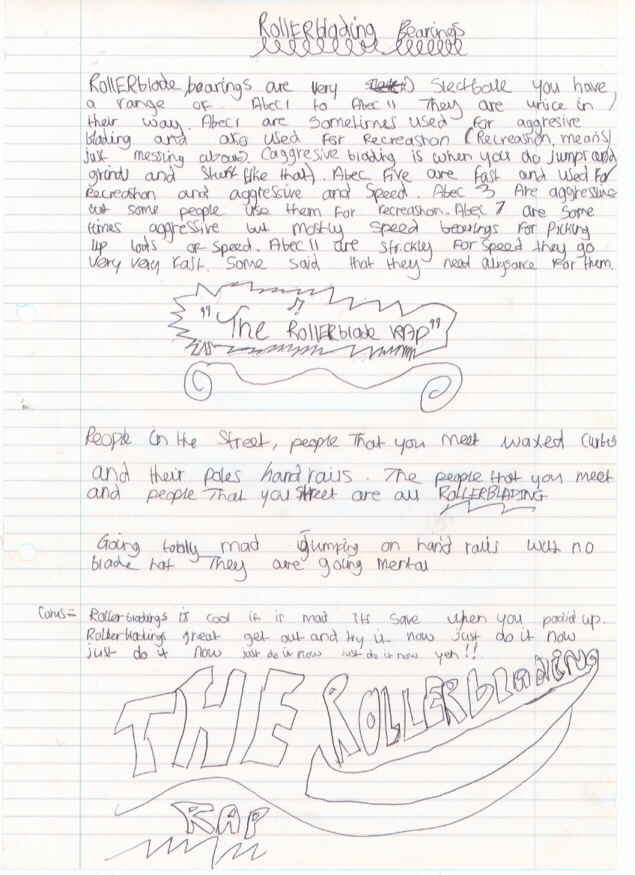 RollERblading Bearings
RollERblade bearings are very Slectbale you have
a range of Abec 1 to Abec 11 They are unice in
their way. Abec 1 are sometimes used for aggresive
blading and also used for Recreashon (Recreashon means
just messing about) (aggresive blading is when you do Jumps and
grinds and stunt (like that). Abec Five are fast and used for
Recreashon and aggressive and Speed. Abec 3 Are aggressive
but some people use them for recreashon. Abec 7 are Some
times aggressive but mostly speed bearings for Picking
up loads of speed. Abec 11 are strickley for speed they go
very very fast. Some said that they need for them.
"The ROLLERblade RAP"
People On the Street, people That you meet waxed Curbs
and their Poles handrails. The people that you meet
and people That you Street are all ROLLERBLADING
Going totaly mad Jumping on hand rails with no
blade hat They are going Mental
Corus = Roller bladings is cool it is mad its save when you padid up.
Rollerbladings great get out and try it now just do it now
just do it now just do it now just do it now yeh!!
THE ROLLERblading
RAP